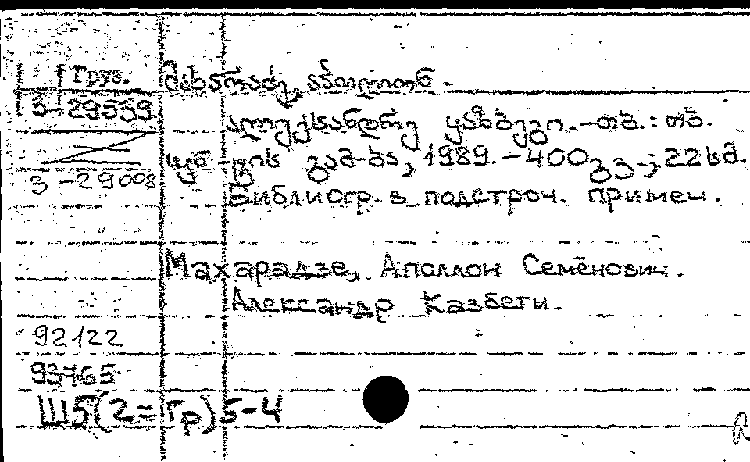 Груз. მახარაძე, აპოლონ.
3-29559
ალექსანდრე ყაზბეგი.-თბ.: თბ.
უნ-ტის გამ-ბა, 1989.-400გვ.; 22სმ.
3-29008
Библиогр. в подстроч. примеч.
Махарадзе, Аполлон Семёнович.
Александр Казбеги.
92122
93465
Ш5(2=Гр)5-4